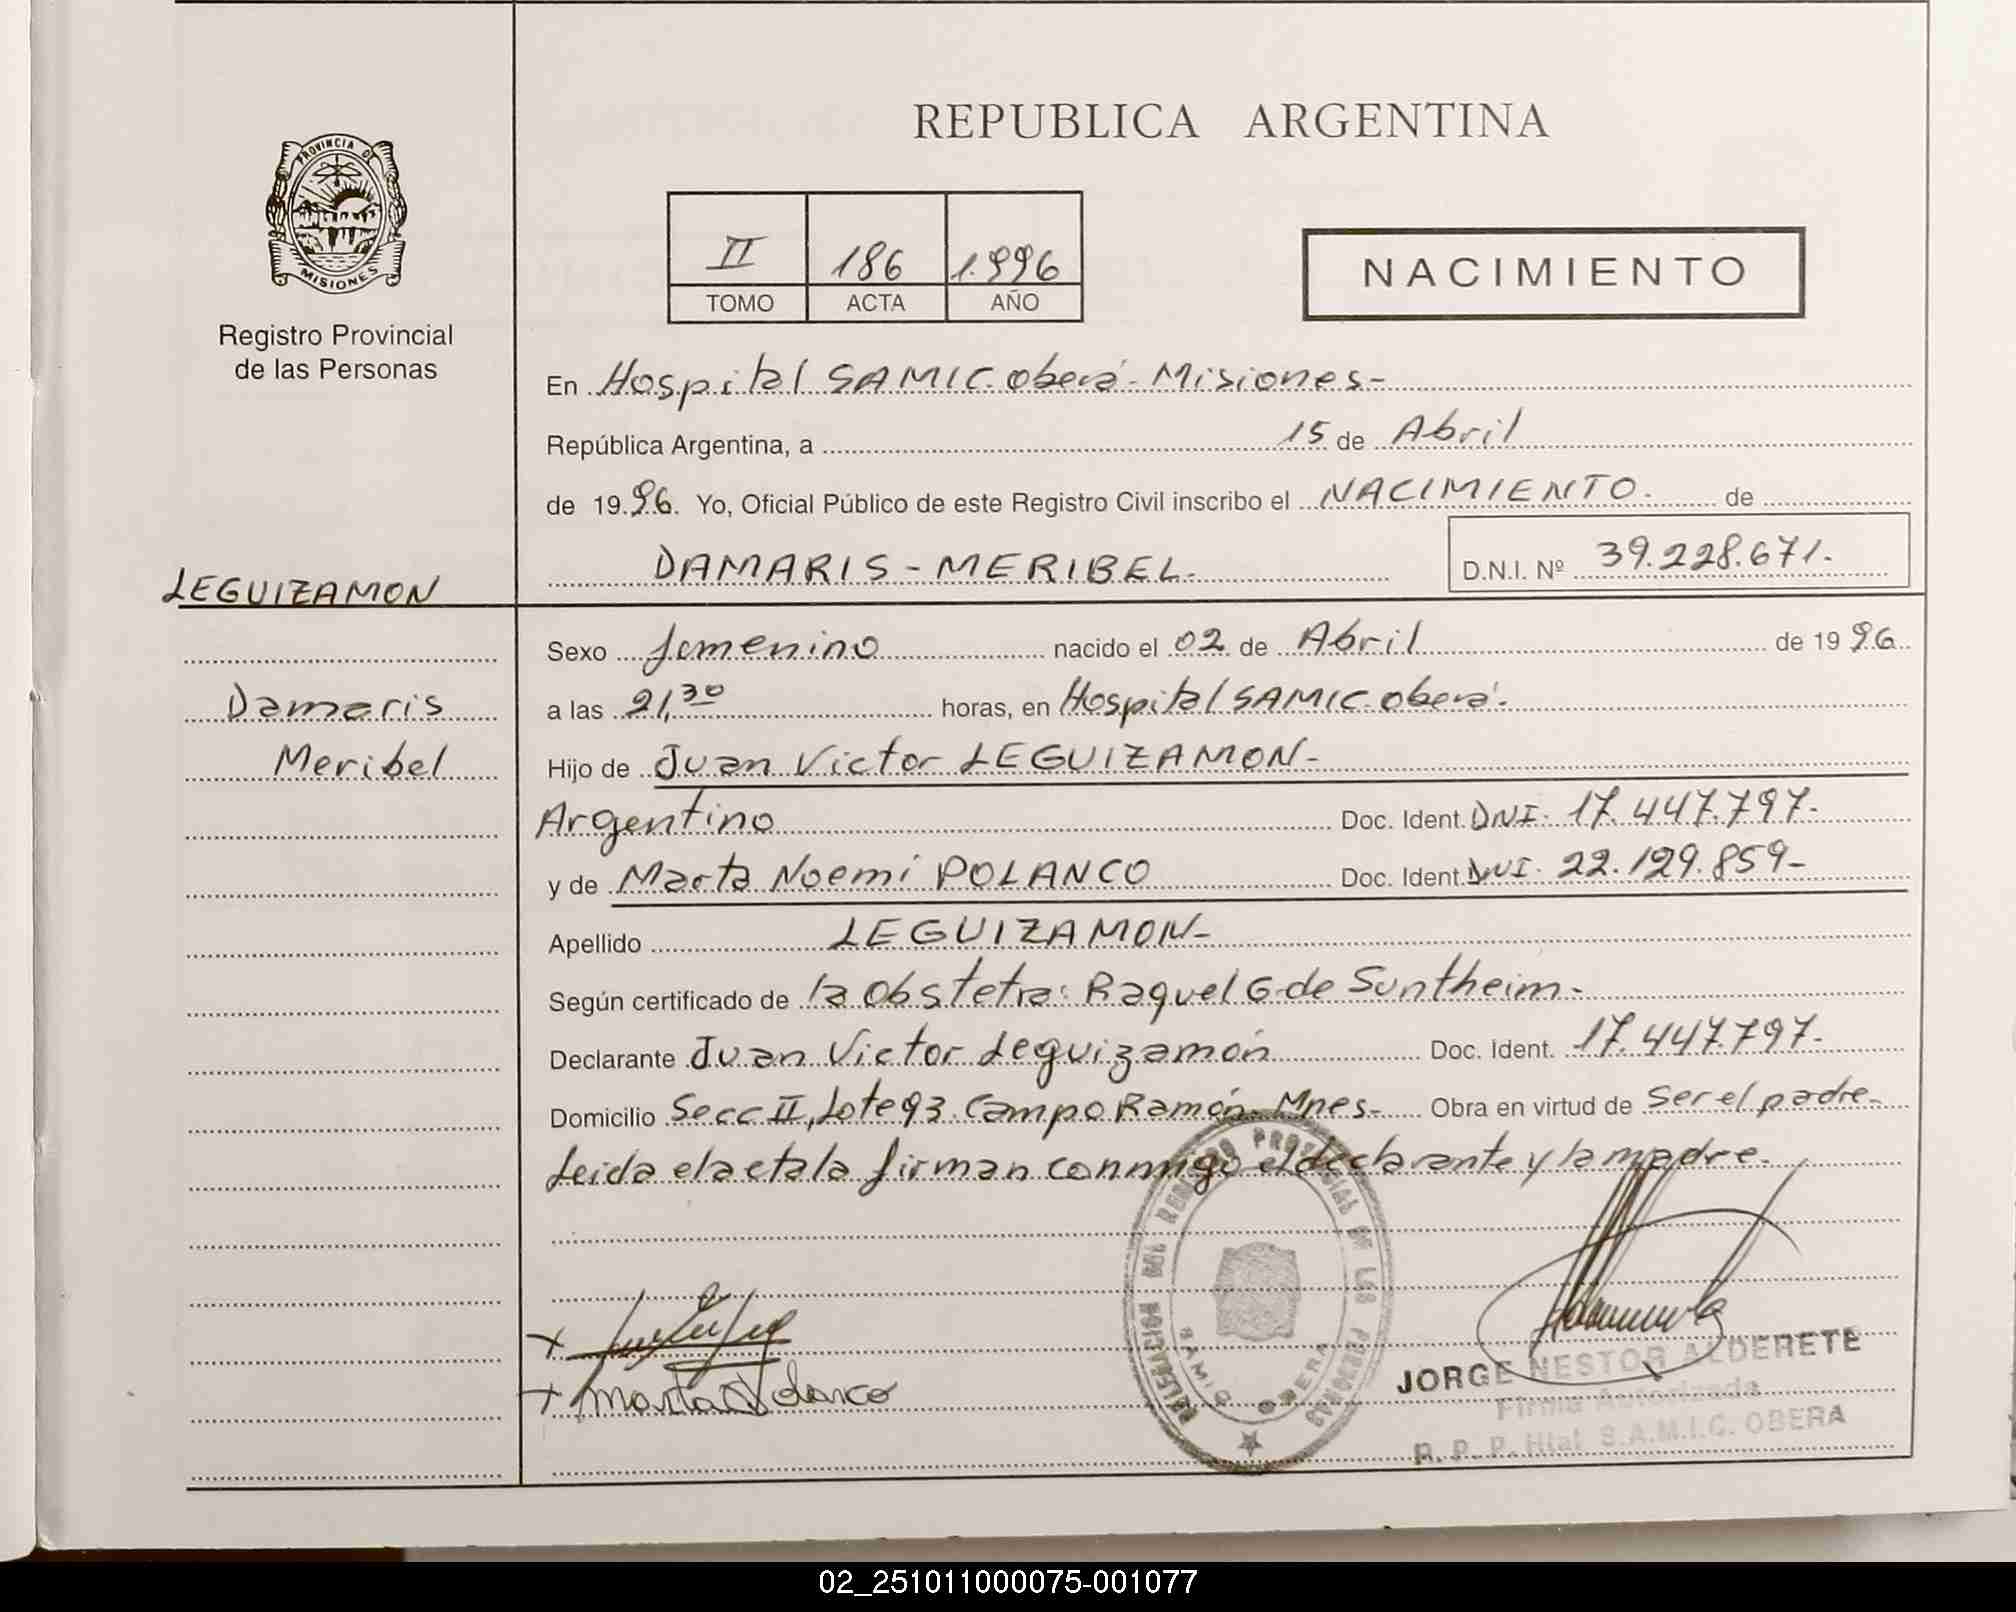 PROVINCIA DE
MISIONES
Registro Provincial
de las Personas
LEGUIZAMON
Damaris
Meribel
REPUBLICA ARGENTINA
II 186 1.996
TOMO ACTA AÑO
NACIMIENTO
En Hospital SAMIC. Oberá - Misiones-
República Argentina, a 15 de Abril
de 1996. Yo, Oficial Público de este Registro Civil inscribo el NACIMIENTO. de
DAMARIS - MERIBEL. D.N.I. Nº 39.228.671.
Sexo femenino nacido el 02 de Abril de 1996
a las 21,30 horas, en Hospital SAMIC. Oberá.
Hijo de Juan Victor LEGUIZAMON-
Argentino Doc. Ident. DNI. 17.447.797-
y de Marta Noemí POLANCO Doc. Ident. DNI. 22.129.859-
Apellido LEGUIZAMON-
Según certificado de la Obstetra: Raquel G. de Suntheim-
Declarante Juan Victor Leguizamón Doc. Ident. 17.447.797-
Domicilio Secc II, Lote 93. Campo Ramón. Mnes- Obra en virtud de Ser el padre-
Leida el acta la firman conmigo el declarante y la madre.
DELEGACION DEL REGISTRO PROVINCIAL DE LAS PERSONAS
SAMIC OBERA
x
+ Marta Polanco
JORGE NESTOR ALDERETE
Firma Autorizada
R. P. P. Htal. S.A.M.I.C. OBERA
02_251011000075-001077